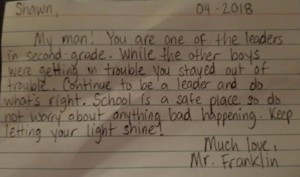 Shawn, 04-2018
My man! You are one of the leaders
in second grade. While the other boys
were getting in trouble you stayed out of
trouble. Continue to be a leader and do
what's right. School is a safe place so do
not worry about anything bad happening. Keep
letting your light shine!
Much love,
Mr. Franklin